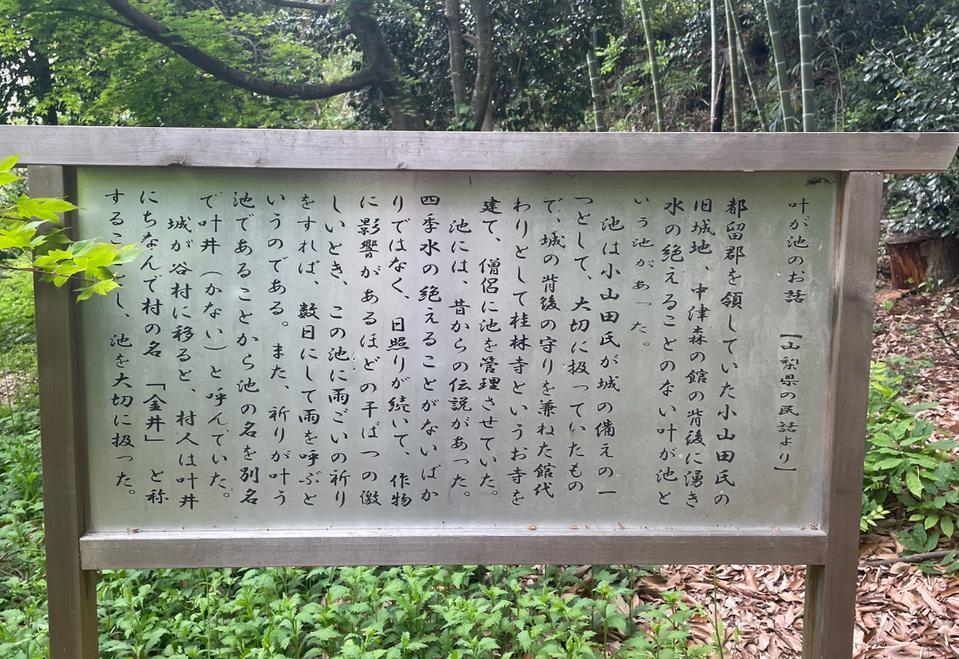 叶が池のお話　【山梨県の民話より】
都留郡を領していた小山田氏の
旧城地、中津森の館の背後に湧き
水の絶えることのない叶が池と
いう池があった。
池は小山田氏が城の備えの一
つとして、大切に扱っていたもの
で、城の背後の守りを兼ねた館代
わりとして桂林寺というお寺を
建て、僧侶に池を管理させていた。
池には、昔からの伝説があった。
四季水の絶えることがないばか
りではなく、日照りが続いて、作物
に影響があるほどの干ばつの激
しいとき、この池に雨ごいの祈り
をすれば、数日にして雨を呼ぶと
いうのである。また、祈りが叶う
池であることから池の名を別名
で叶井（かない）と呼んでいた。
城が谷村に移ると、村人は叶井
にちなんで村の名「金井」と称
するこ し、池を大切に扱った。